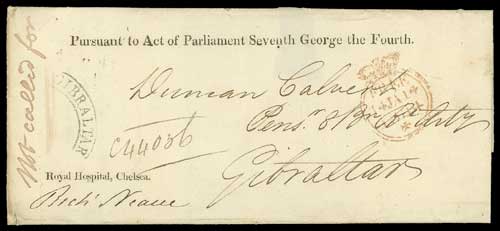 Pursuant to Act of Parliament Seventh George the Fourth.
Not called for
GIBRALTAR
Duncan Calver
Pensr
C44036
Gibraltar
Royal Hospital, Chelsea.
Richd Neave